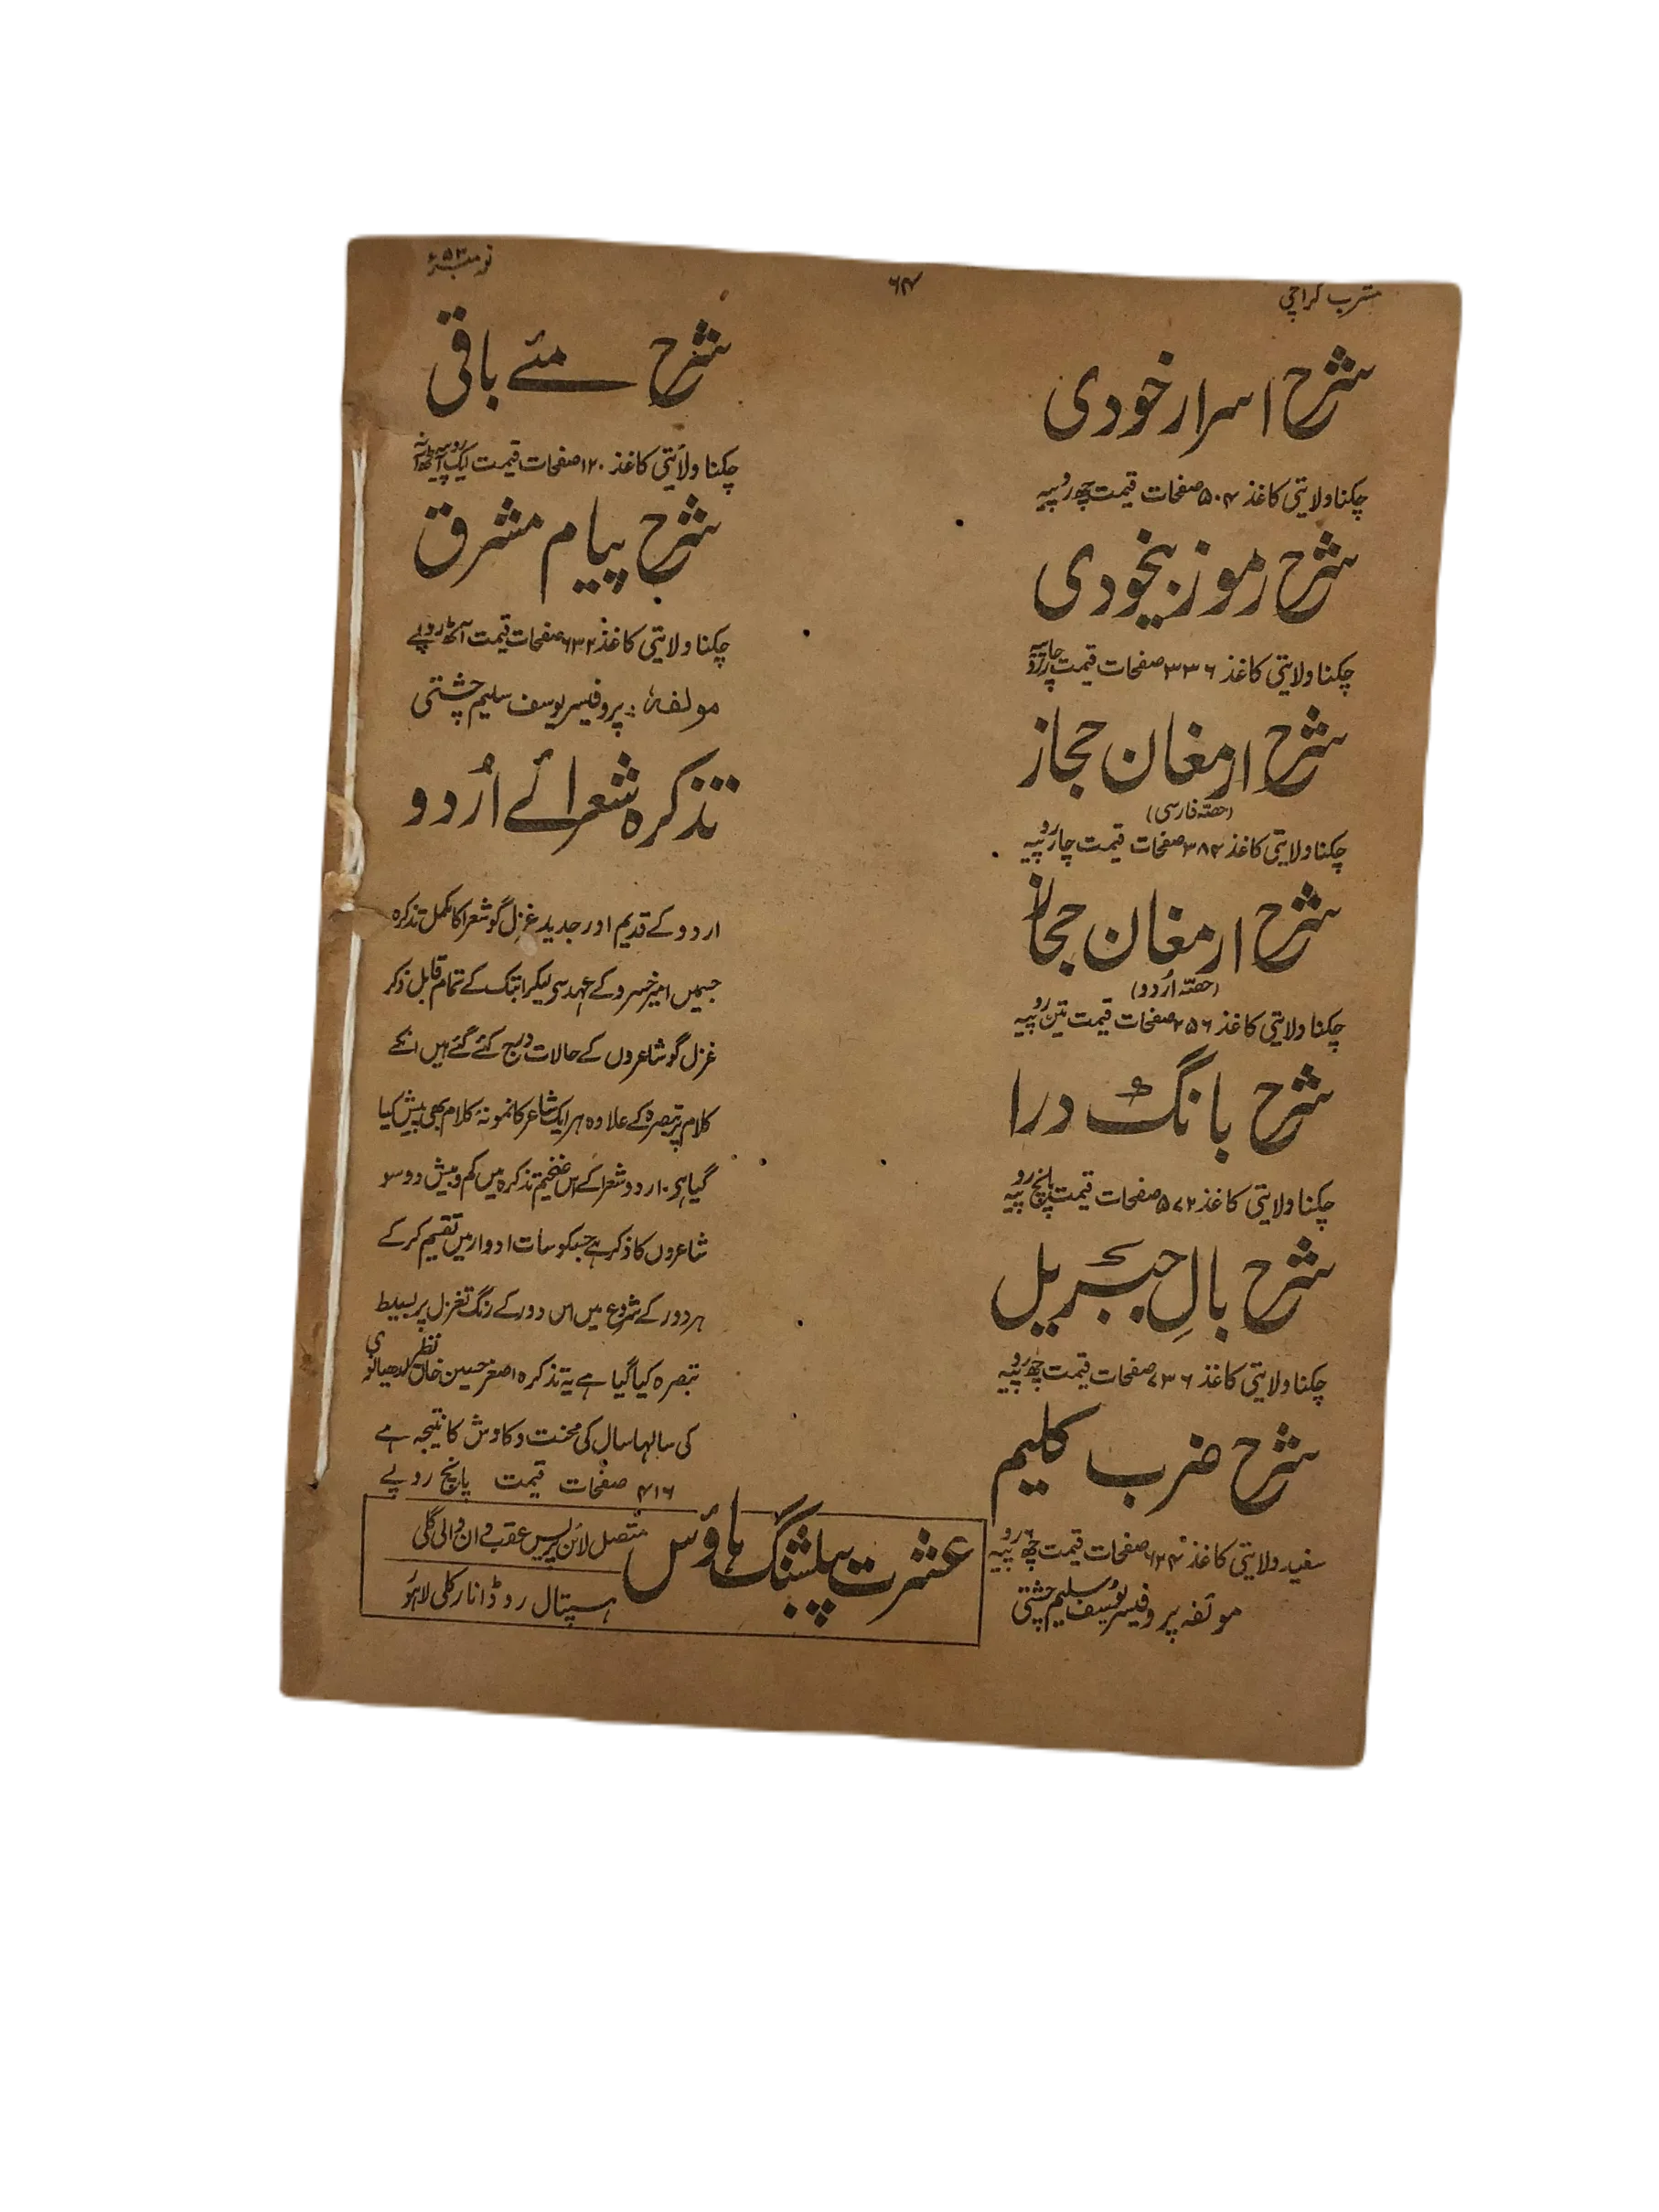 مشرب کراچی
۶۴
نومبر ۵۳ء
شرح اسرار خودی
چکنا ولایتی کاغذ ۵۰۴ صفحات قیمت چھ روپیہ
شرح رموز بیخودی
چکنا ولایتی کاغذ ۳۳۶ صفحات قیمت چار روپیہ
شرح ارمغان حجاز
(حصّہ فارسی)
چکنا ولایتی کاغذ ۳۸۴ صفحات قیمت چار روپیہ
شرح ارمغان حجاز
(حصّہ اُردو)
چکنا ولایتی کاغذ ۲۵۶ صفحات قیمت تین روپیہ
شرح بانگ درا
چکنا ولایتی کاغذ ۵۷۲ صفحات قیمت پانچ روپیہ
شرح بالِ جبریل
چکنا ولایتی کاغذ ۷۳۶ صفحات قیمت چھ روپیہ
شرح ضرب کلیم
سفید ولایتی کاغذ ۶۲۴ صفحات قیمت چھ روپیہ
مولفہ پروفیسر یوسف سلیم چشتی
شرح مئے باقی
چکنا ولائتی کاغذ ۱۲۰ صفحات قیمت ایک روپیہ آٹھ آنہ
شرح پیام مشرق
چکنا ولایتی کاغذ ۶۳۲ صفحات قیمت آٹھ روپے
مولفہٗ: پروفیسر یوسف سلیم چشتی
تذکرہ شعرائے اُردو
اردو کے قدیم اور جدید غزل گو شعرا کا مکمل تذکرہ
جسمیں امیر خسرو کے عہد سی لیکر ابتک کے تمام قابل ذکر
غزل گو شاعروں کے حالات درج کئے گئے ہیں انکے
کلام پر تبصرہ کے علاوہ ہر ایک شاعر کا نمونۂ کلام بھی پیش کیا
گیا ہی۔ اردو شعرا کے اس ضخیم تذکرہ میں کم و بیش دو سو
شاعروں کا ذکر ہے جسکو سات ادوار میں تقسیم کر کے
ہر دور کے شروع میں اس دور کے رنگ تغزل پر بسیط
تبصرہ کیا گیا ہے یہ تذکرہ اصغر حسین خاں نظیر لدھیانوی
کی سالہا سال کی محنت و کاوش کا نتیجہ ہے
۴۱۶ صفحات قیمت پانچ روپے
عشرت پبلشنگ ہاؤس
متصل لائن پریس عقب وان والی گلی
ہسپتال روڈ انارکلی لاہور